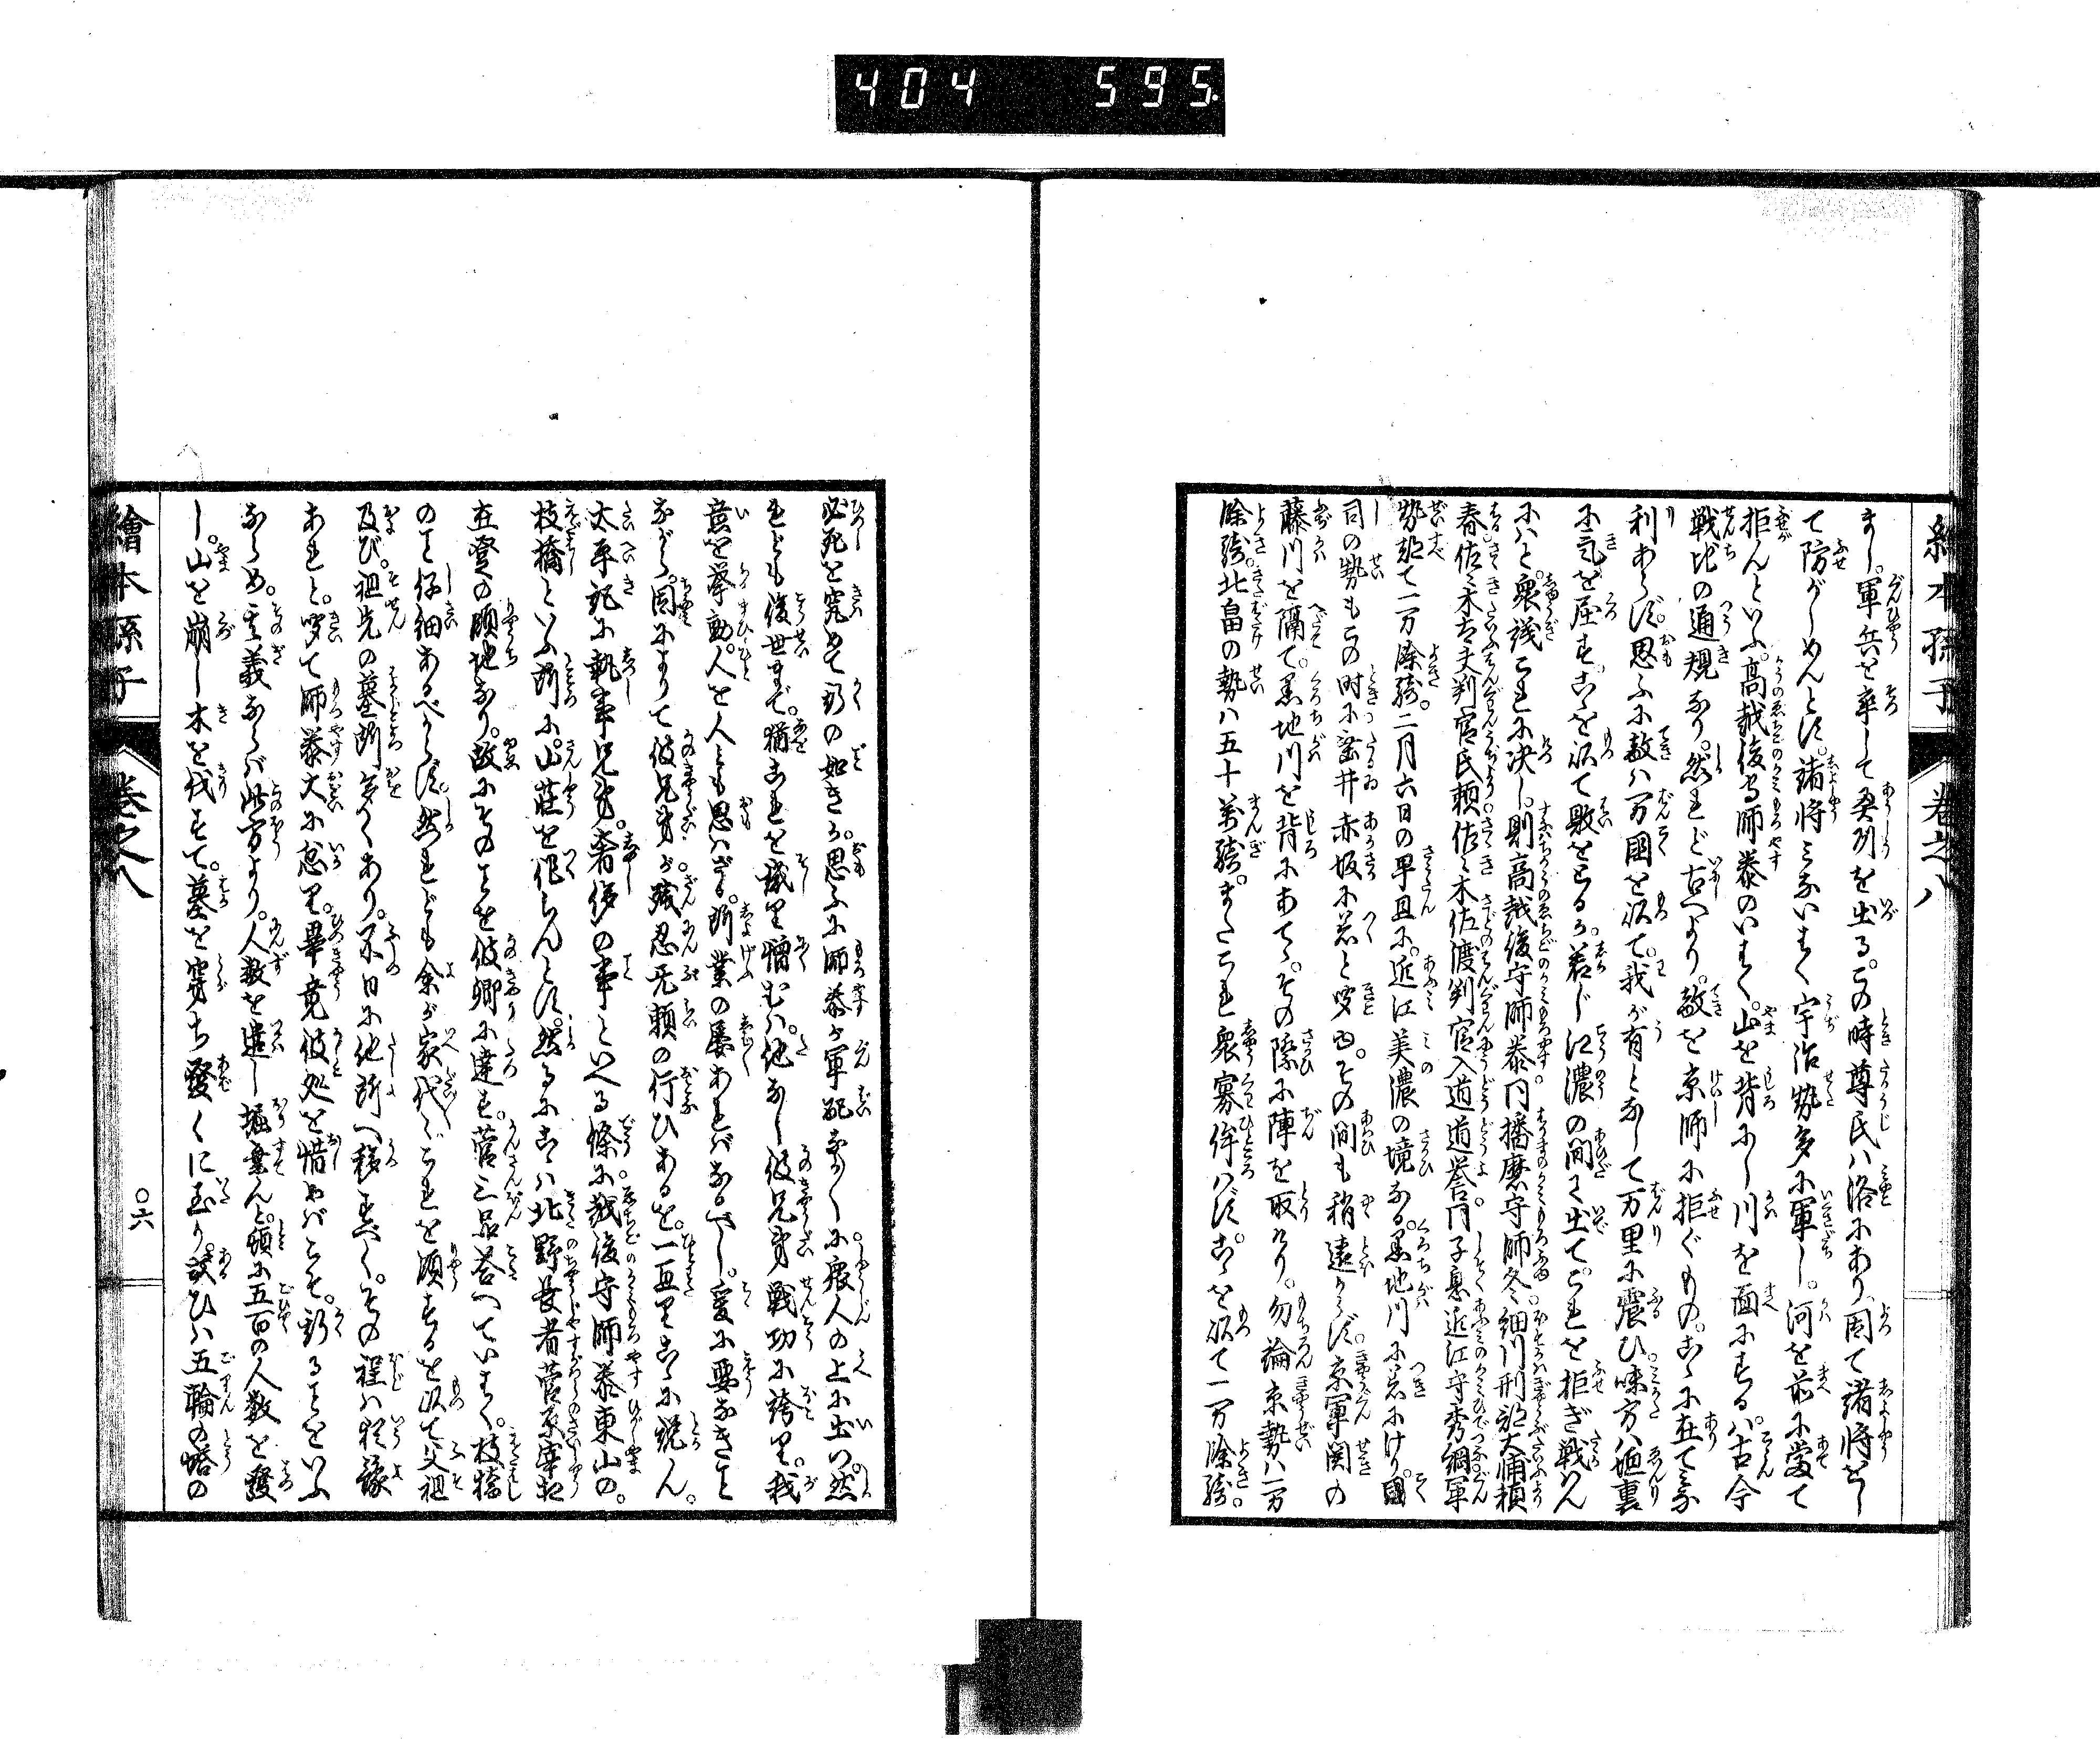 404 595
絵本孫子 巻之八
まし。軍兵を率して奥州を出る。この時尊氏ハ洛にあり。因て諸将をし
て防がしめんとす。諸将ミないはく宇治勢多に軍し。河を前に当て
拒んといふ。高越後守師泰のいはく。山を背にし川を面にするハ。古今
戦地の通規なり。然れど古へより。敵を京師に拒ぐもの。こゝに在てミな
利あらず。思ふに敵ハ万国を以て。我が有となして万里に震ひ。味方ハ洫裏
に気を屈す。こゝを以て敗をとるか。若じ江濃の間に出て。これを拒ぎ戦はん
にハと。衆議これに决し。則高越後守師泰。同播磨守師冬。細川刑部大輔頼
春。佐々木大夫判官氏頼。佐々木佐渡判官入道道誉。同子息近江守秀綱。軍
勢都て一万餘騎。二月六日の早旦に。近江美濃の境なる。黒地川に着にけり。国
司の勢もこの時に垂井赤坂に着と聞ゆ。その間も稍遠からず。京軍関の
藤川を隔て。黒地川を背にあて。その際に陣を取けり。勿論京勢ハ一万
餘騎。北畠の勢ハ五十万騎。またこれ衆寡侔ハず。こゝを以て一万餘騎。
必死を究めて斯の如きか。思ふに師泰が軍配なか〳〵に衆人の上に出づ。然
れども後世まで。猶これを譏り憎むハ。他なし彼兄弟戦功に誇り。我
意を挙動。人を人とも思ハざる。所業の屡あれバなるべし。爰に要なきこと
ながら。因によりて彼兄弟が。残忍无頼の行ひあるを。一二りこゝに説ん。
太平記に執事兄弟。奢侈の事といへる條に。越後守師泰東山の。
枝橋といふ所に。山荘を作らんとす。然るにこゝハ北野長者菅原宰相
在登の領地なり。故にそのことを彼卿に達す。菅三品答へていはく。枝橋
のこと仔細あるべからず。然れども余が家代〻これを領するを以て。父祖
及び。祖先の墓所多くあり。不日に他所へ移すべく。その程ハ猶豫
あれと。聞て師泰大に忿り。畢竟彼処を惜めバこそ。斯ることをいふ
ならめ。其義ならバ此方より。人数を遣し掘棄んと。頓に五百の人数を發
し。山を崩し木を伐すて。墓を穿ち發くに至り。或ひハ五輪の塔の
繪本孫子 巻之八 〇六